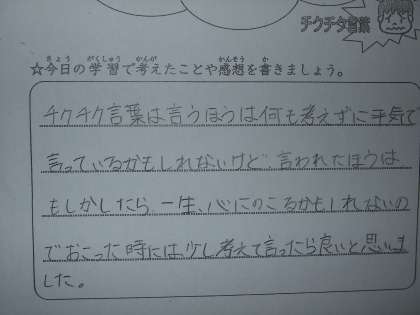 チクチク言葉
☆今日の学習で考えたことや感想を書きましょう。
チクチク言葉は言うほうは何も考えずに平気で
言っているかもしれないけど、言われたほうは
もしかしたら一生、心にのこるかもしれないの
でおこった時には、少し考えて言ったら良いと思いま
した。